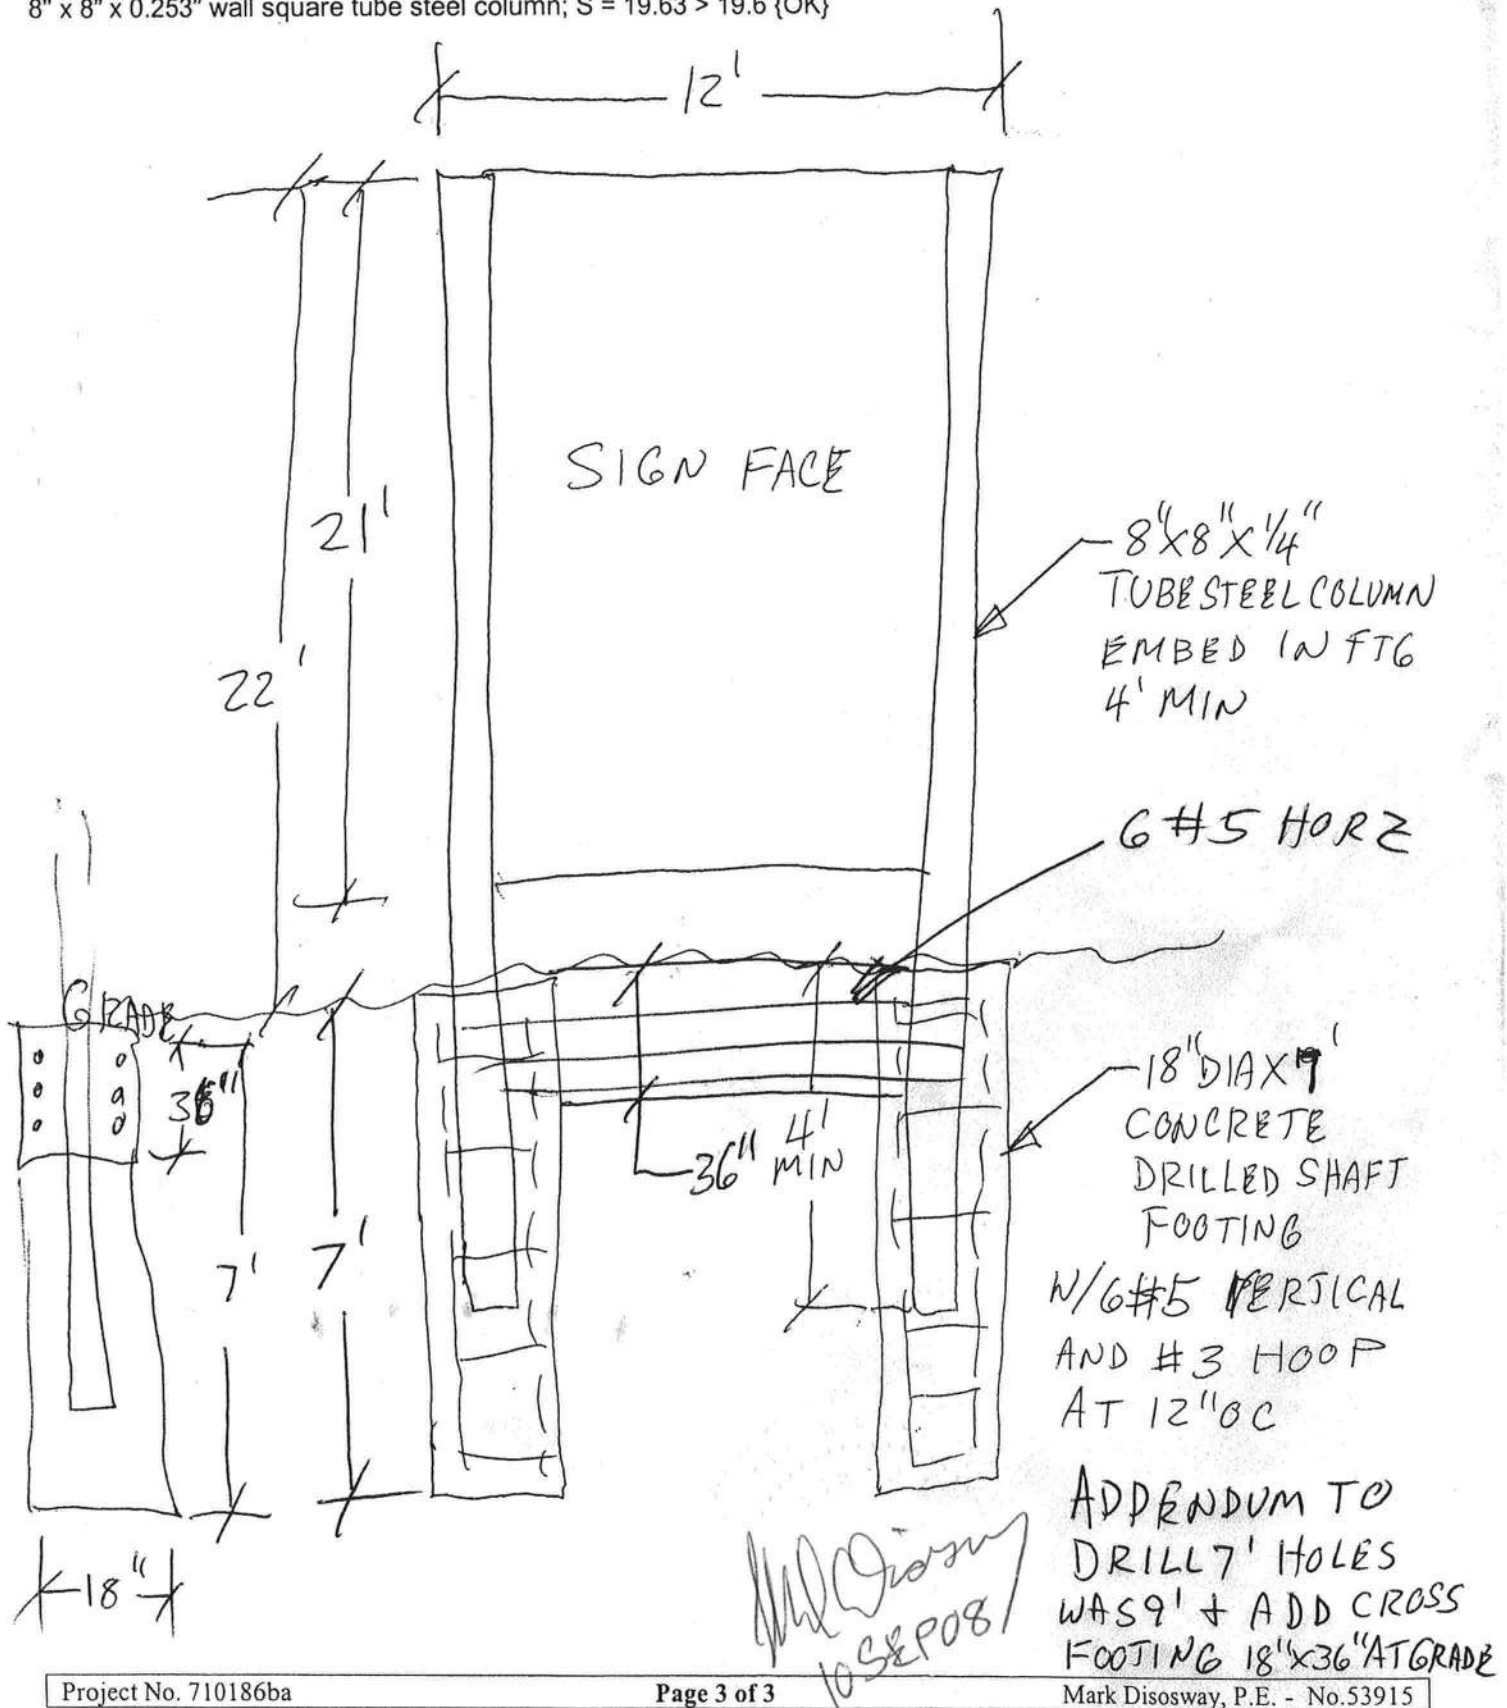 8" x 8" x 0.253" wall square tube steel column; S = 19.63 > 19.6 {OK}
12'
SIGN FACE
21'
22'
8"X8"X1/4"
TUBE STEEL COLUMN
EMBED IN FTG
4' MIN
6 #5 HORZ
GRADE
36"
7'
7'
36"
4'
MIN
18" DIA X 7'
CONCRETE
DRILLED SHAFT
FOOTING
W/6#5 VERTICAL
AND #3 HOOP
AT 12"OC
18"
ADDENDUM TO
DRILL 7' HOLES
WAS 9' + ADD CROSS
FOOTING 18"X36" AT GRADE
10SEP08
Project No. 710186ba
Page 3 of 3
Mark Disosway, P.E. - No.53915